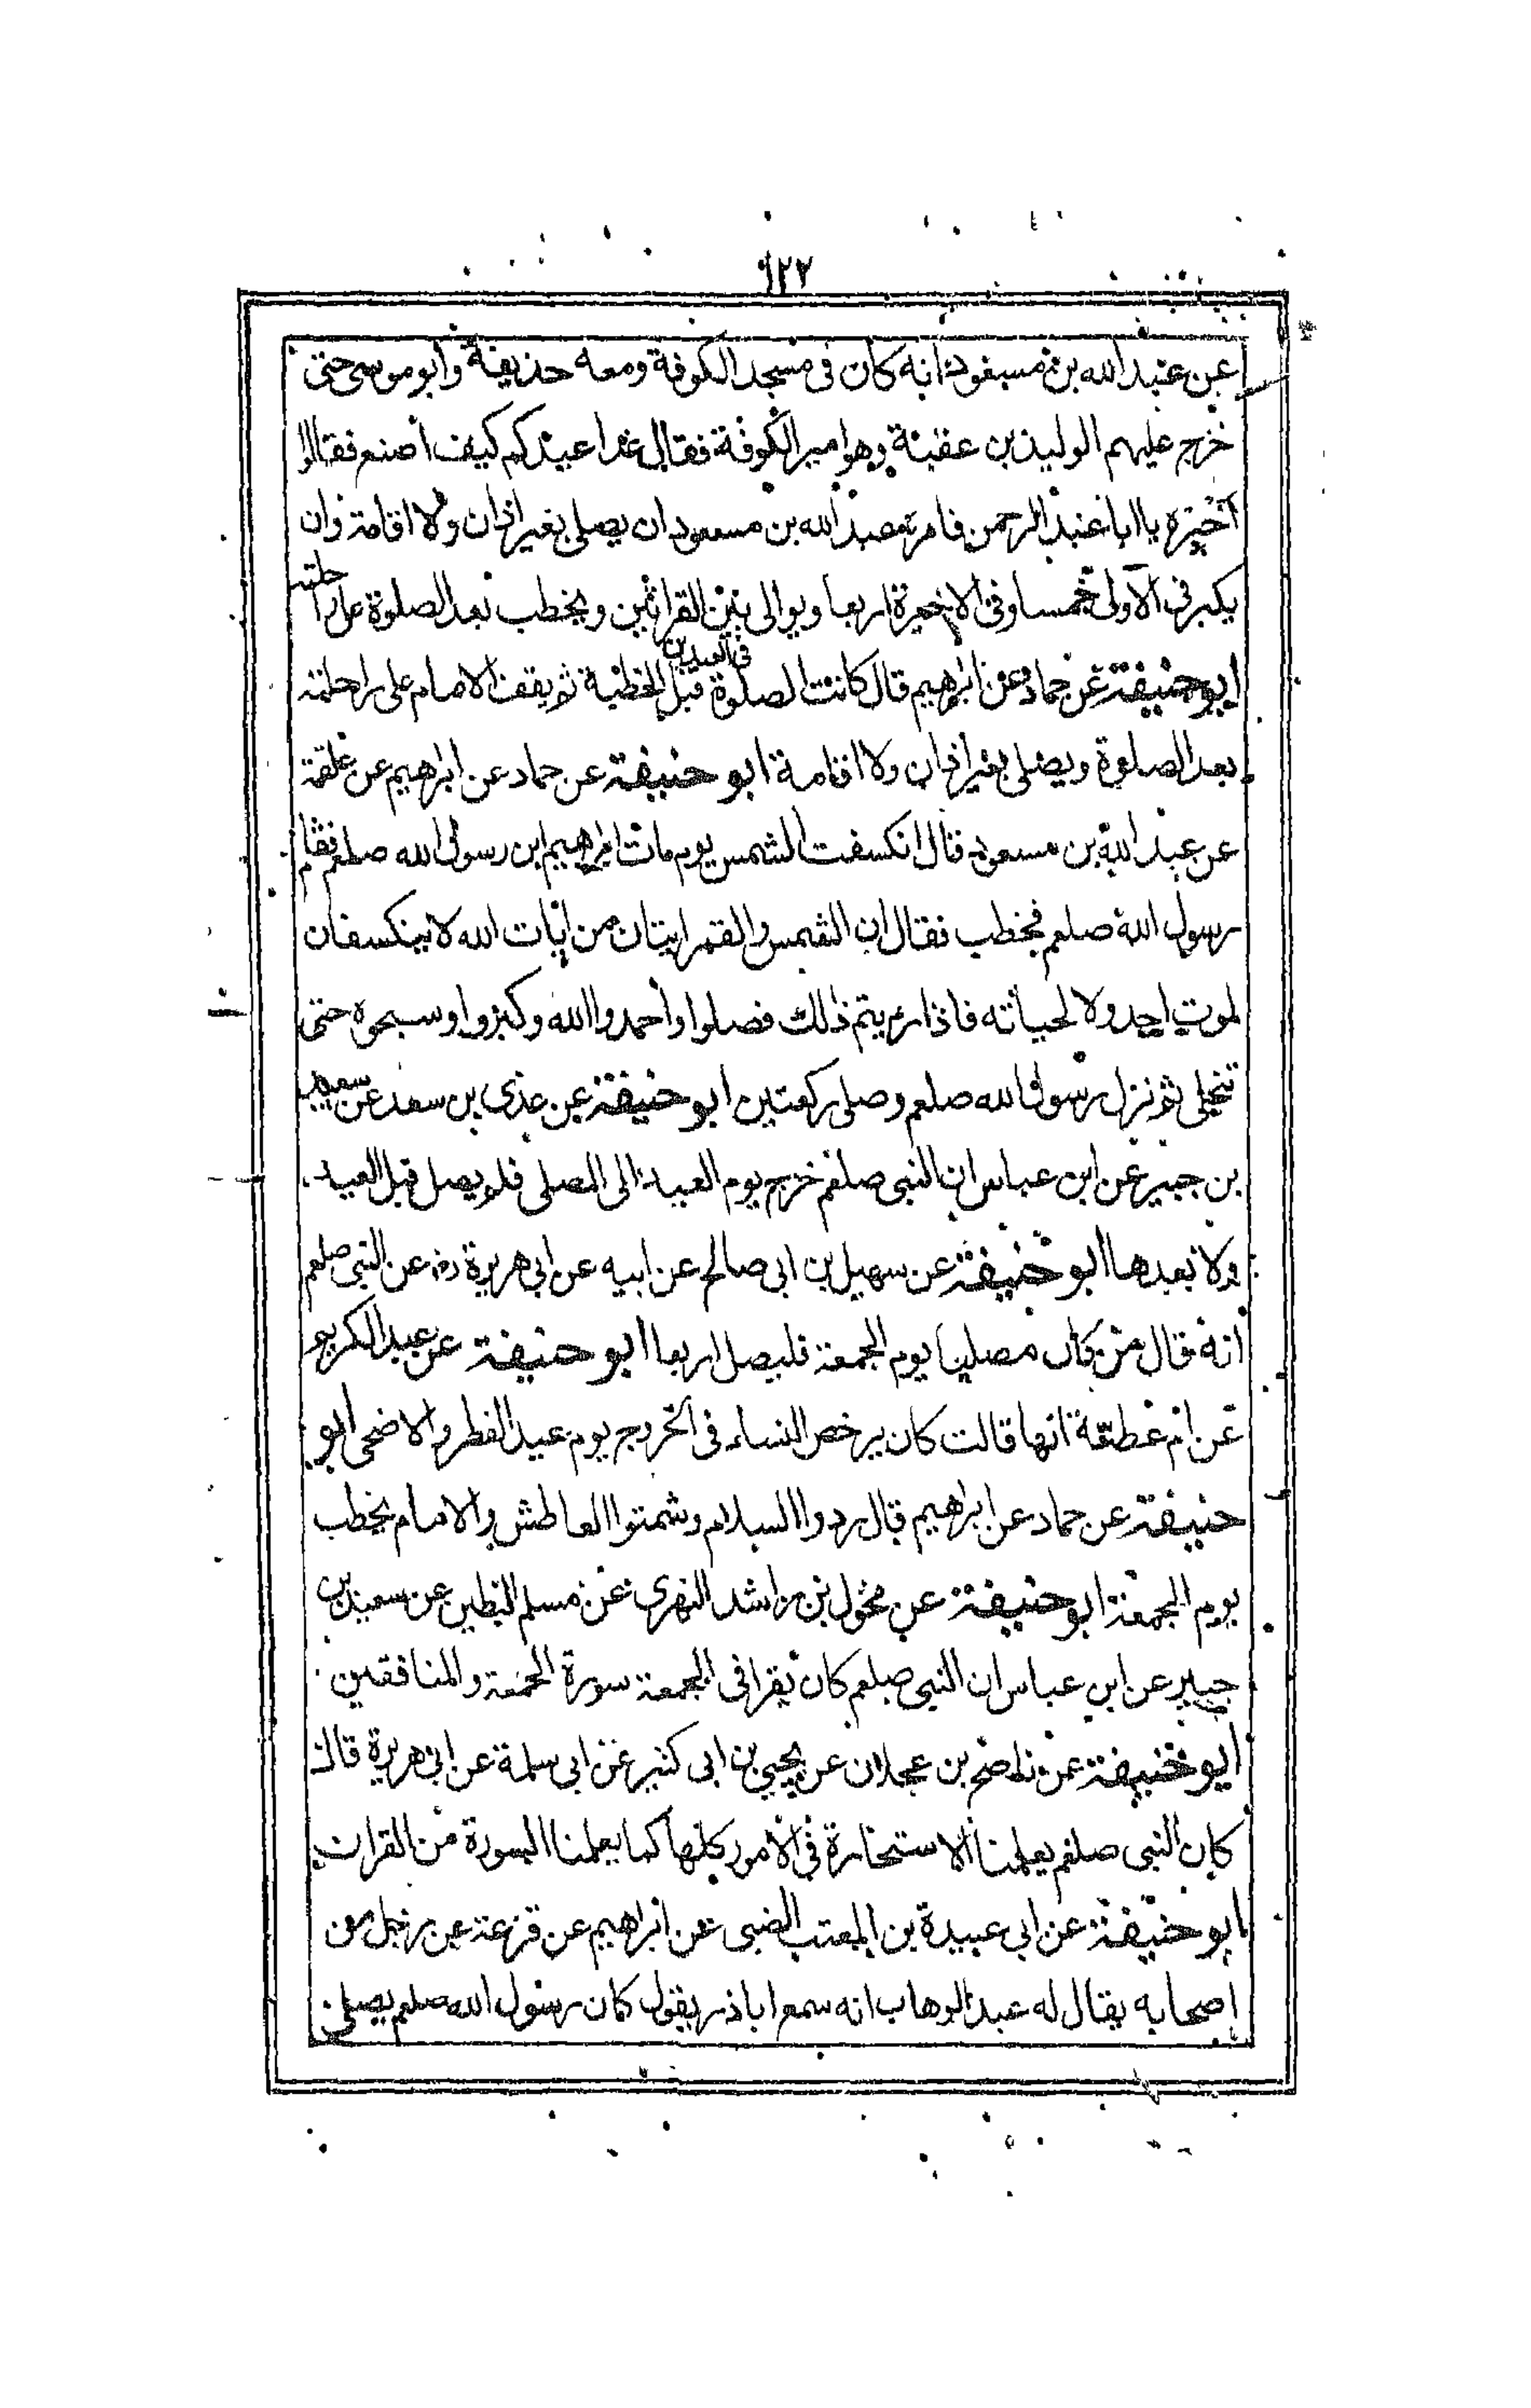 ١٢٢
عن عبد الله بن مسعود انه كان فى مسجد الكوفة ومعه حذيفة وابو موسى حتى
خرج عليهم الوليد بن عقبة وهو امير الكوفة فقال غدا عيدكم كيف اصنع فقالا
اخبره يا ابا عبد الرحمن فامره عبد الله بن مسعود ان يصلى بغير اذان ولا اقامة وان
يكبر فى الاولى خمسا وفى الاخيرة اربعا ويوالى بين القراءتين ويخطب بعد الصلوة على راحلته
ابو حنيفة عن حماد عن ابرهيم قال كانت الصلوة فى العيدين قبل الخطبة ثم يقف الامام على راحلته
بعد الصلوة ويصلى بغير اذان ولا اقامة ابو حنيفة عن حماد عن ابرهيم عن علقمة
عن عبد الله بن مسعود قال انكسفت الشمس يوم مات ابرهيم ابن رسول الله صلعم فقام
رسول الله صلعم فخطب فقال ان الشمس والقمر ايتان من ايات الله لا ينكسفان
لموت احد ولا لحياته فاذا رايتم ذلك فصلوا واحمدوا الله وكبروا وسبحوه حتى
تنجلى ثم نزل رسول الله صلعم وصلى ركعتين ابو حنيفة عن عدى بن سعد عن سعيد
بن جبير عن ابن عباس ان النبى صلعم خرج يوم العيد الى المصلى فلم يصل قبل العيد
ولا بعدها ابو حنيفة عن سهيل بن ابى صالح عن ابيه عن ابى هريرة رض عن النبى صلعم
انه قال من كان مصليا يوم الجمعة فليصل اربعا ابو حنيفة عن عبد الكريم
عن ام عطية انها قالت كان يرخص النساء فى الخروج يوم عيد الفطر والاضحى ابو
حنيفة عن حماد عن ابرهيم قال ردوا السلام وشمتوا العاطش والامام يخطب
يوم الجمعة ابو حنيفة عن مخول بن راشد النهرى عن مسلم البطين عن سعيد بن
جبير عن ابن عباس ان النبى صلعم كان يقرا فى الجمعة سورة الجمعة والمنافقين
ابو حنيفة عن ناصح بن عجلان عن يحيى بن ابى كثير عن ابى سلمة عن ابى هريرة قال
كان النبى صلعم يعلمنا الاستخارة فى الامور كلها كما يعلمنا السورة من القران
ابو حنيفة عن ابى عبيدة بن المعتب الضبى عن ابراهيم عن قزعة عن رجل من
اصحابه يقال له عبد الوهاب انه سمع اباذر يقول كان رسول الله صلعم يصلى